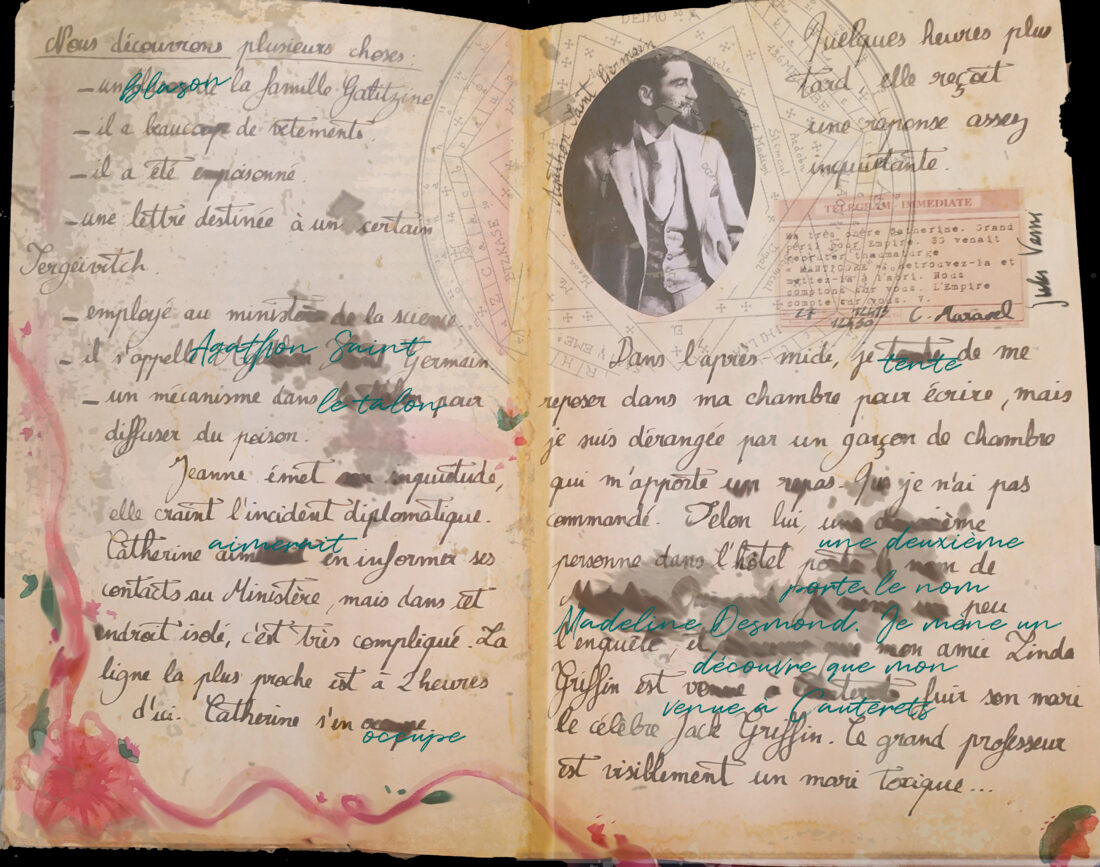 Nous découvrons plusieurs choses:
- un Blason de la famille Galitzine
- il a beaucoup de vêtements.
- il a été empoisonné.
- une lettre destinée à un certain
Sergeivitch.
- employé au ministère de la science
- il s'appelle Agathon Saint Germain
- un mécanisme dans le talon pour
diffuser du poison.
Jeanne émet son inquiétude,
elle craint l'incident diplomatique.
Catherine aimerait en informer ses
contacts au Ministère, mais dans cet
endroit isolé, c'est très compliqué. La
ligne la plus proche est à 2 heures
d'ici. Catherine s'en occupe
Agathon Saint Germain
Quelques heures plus
tard, elle reçoit
une réponse assez
inquiétante.
TELEGRAM - IMMEDIATE
Ma très chère Catherine. Grand
péril pour Empire. SG venait
recruter thaumaturge
« MANTICORE ». Retrouvez-la et
mettez-la à l'abri. Nous
comptons sur vous. L'Empire
compte sur vous. V.
27 12h15
12h30 C. Maravel
Jules Verne
Dans l'après midi, je tente de me
reposer dans ma chambre pour écrire, mais
je suis dérangée par un garçon de chambre
qui m'apporte un repas. Que je n'ai pas
commandé. Selon lui, une deuxième
personne dans l'hôtel porte le nom de
Madeline Desmond. Je mène un peu
l'enquête, et découvre que mon amie Linda
Griffin est venue à Cauterets fuir son mari
le célèbre Jack Griffin. Ce grand professeur
est visiblement un mari toxique...